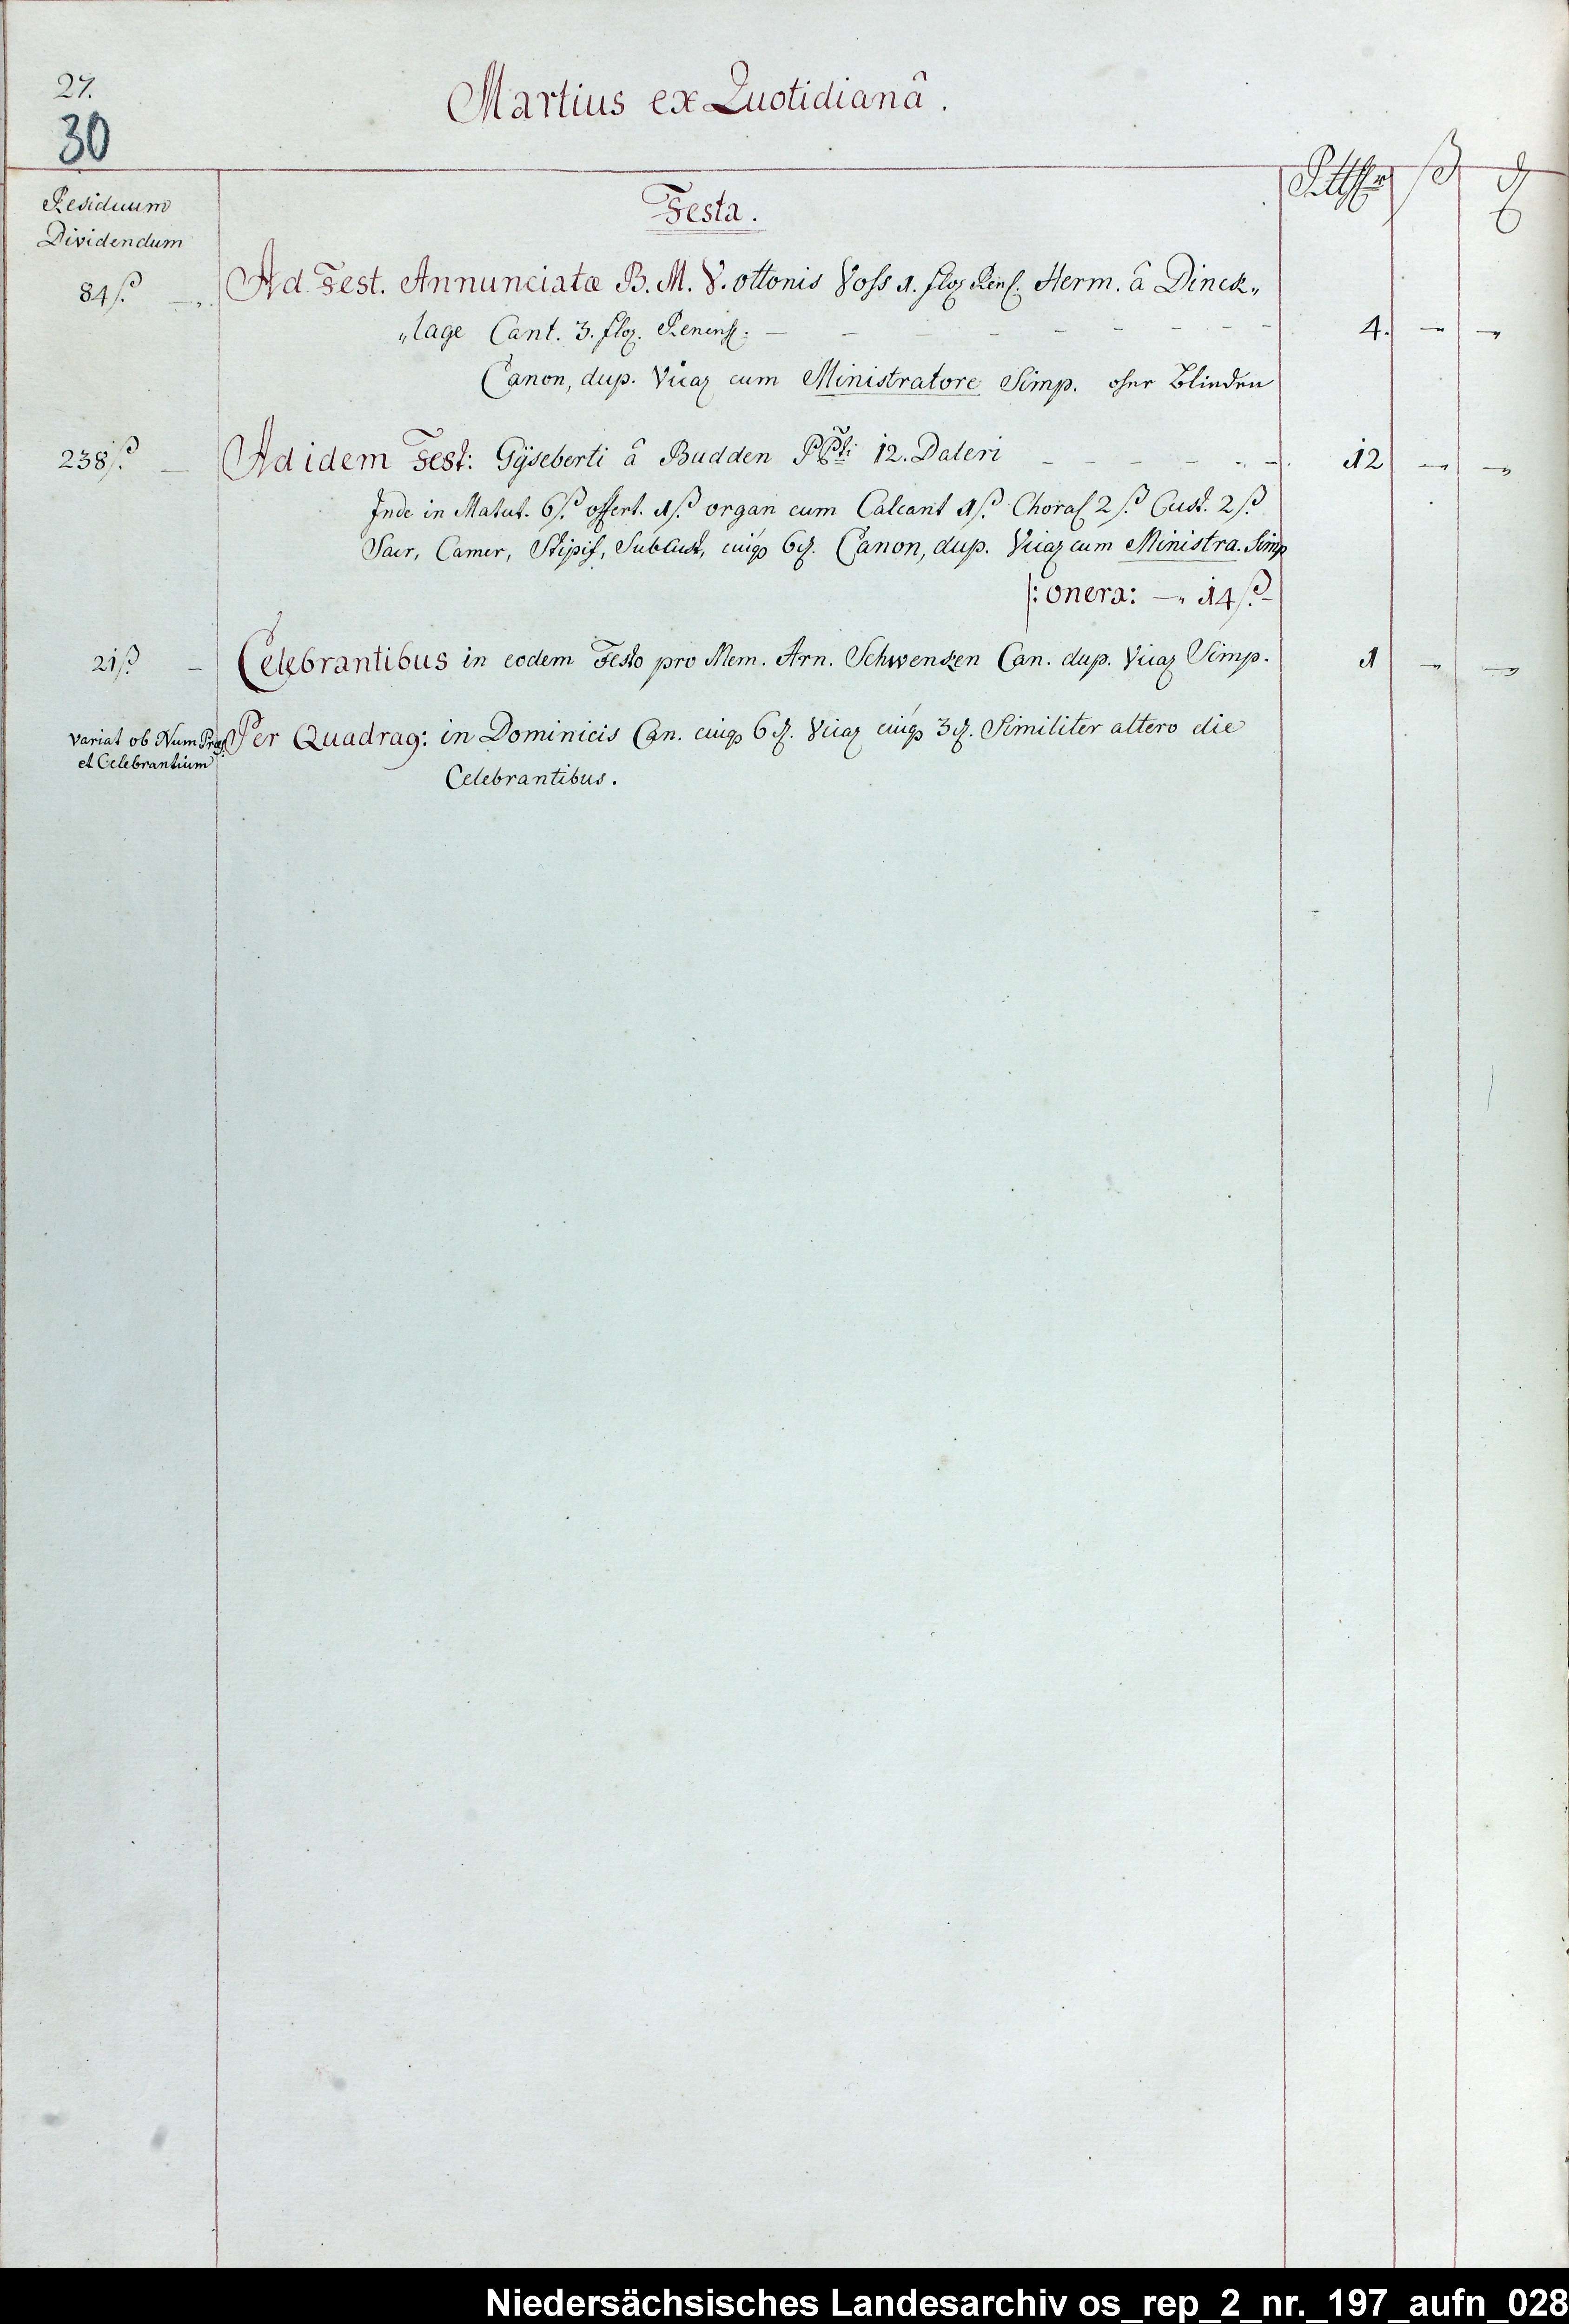 27.
30
Martius ex Quotidianâ.
Residuum
Dividendum
Festa.
Rtlhr ß ₰
84 ß. —„
Ad Fest. Annunciatæ B. M. V. ottonis Voss 1. flor Rens. Herm. â Dinck„
„lage Cant. 3. flor. Renens. — — — — — — — — — 4. — —
Canon, dup. Vicar cum Ministratore Simp. oher Blinden
238 ß. —
Ad idem Fest: Gÿseberti â Budden PPti 12. Daleri — — — — — — 12 — —
Inde in Matut. 6 ß. offert. 1 ß. organ cum Calcant 1 ß. Choral 2 ß. Cust. 2 ß.
Sacr, Camer, Stipif, SubCust, cuiqs 6 ₰. Canon, dup. Vicar cum Ministra. Simp
|: onera: —„ 14 ß. —
21 ß —
Celebrantibus in eodem Festo pro Mem. Arn. Schwenken Can. dup. Vicar Simp. 1 — —
variat ob Num Præs.
et Celebrantium
Per Quadrag: in Dominicis Can. cuiqs 6 ₰. Vicar cuiqs 3 ₰. Similiter altero die
Celebrantibus.
Niedersächsisches Landesarchiv os_rep_2_nr._197_aufn_028